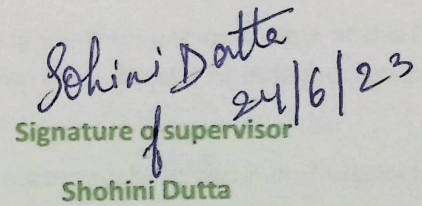 Sohini Dutta
24/6/23
Signature of supervisor
Shohini Dutta